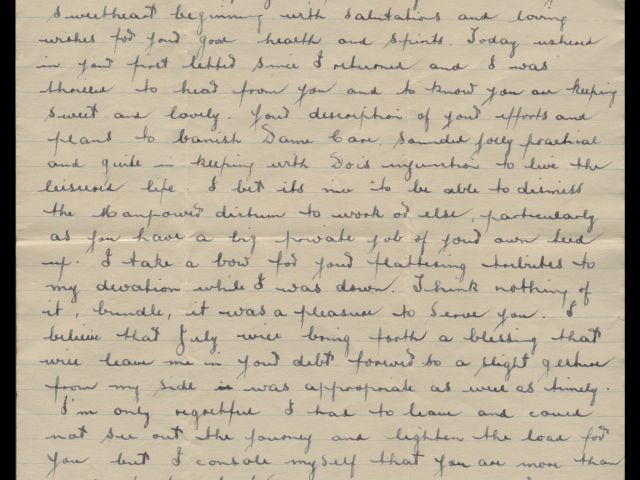 sweetheart beginning with salutations and loving
wishes for your good health and spirits. Today ushered
in your first letter since I returned and I was
thrilled to hear from you and to know you are keeping
sweet and lovely. Your description of your efforts and
plans to banish Dame Care, sounded jolly practical
and quite in keeping with Dois injunction to live the
leisured life. I bet its nice to be able to dismiss
the Manpower dictum to work or else, particularly
as you have a big private job of your own lined
up. I take a bow for your flattering tributes to
my devotion while I was down. Think nothing of
it, bundle, it was a pleasure to serve you. I
believe that July will bring forth a blessing that
will leave me in your debt forever so a slight gesture
from my side was appropriate as well as timely.
I'm only regretful I had to leave and could
not see out the journey and lighten the load for
you but I console myself that you are more than